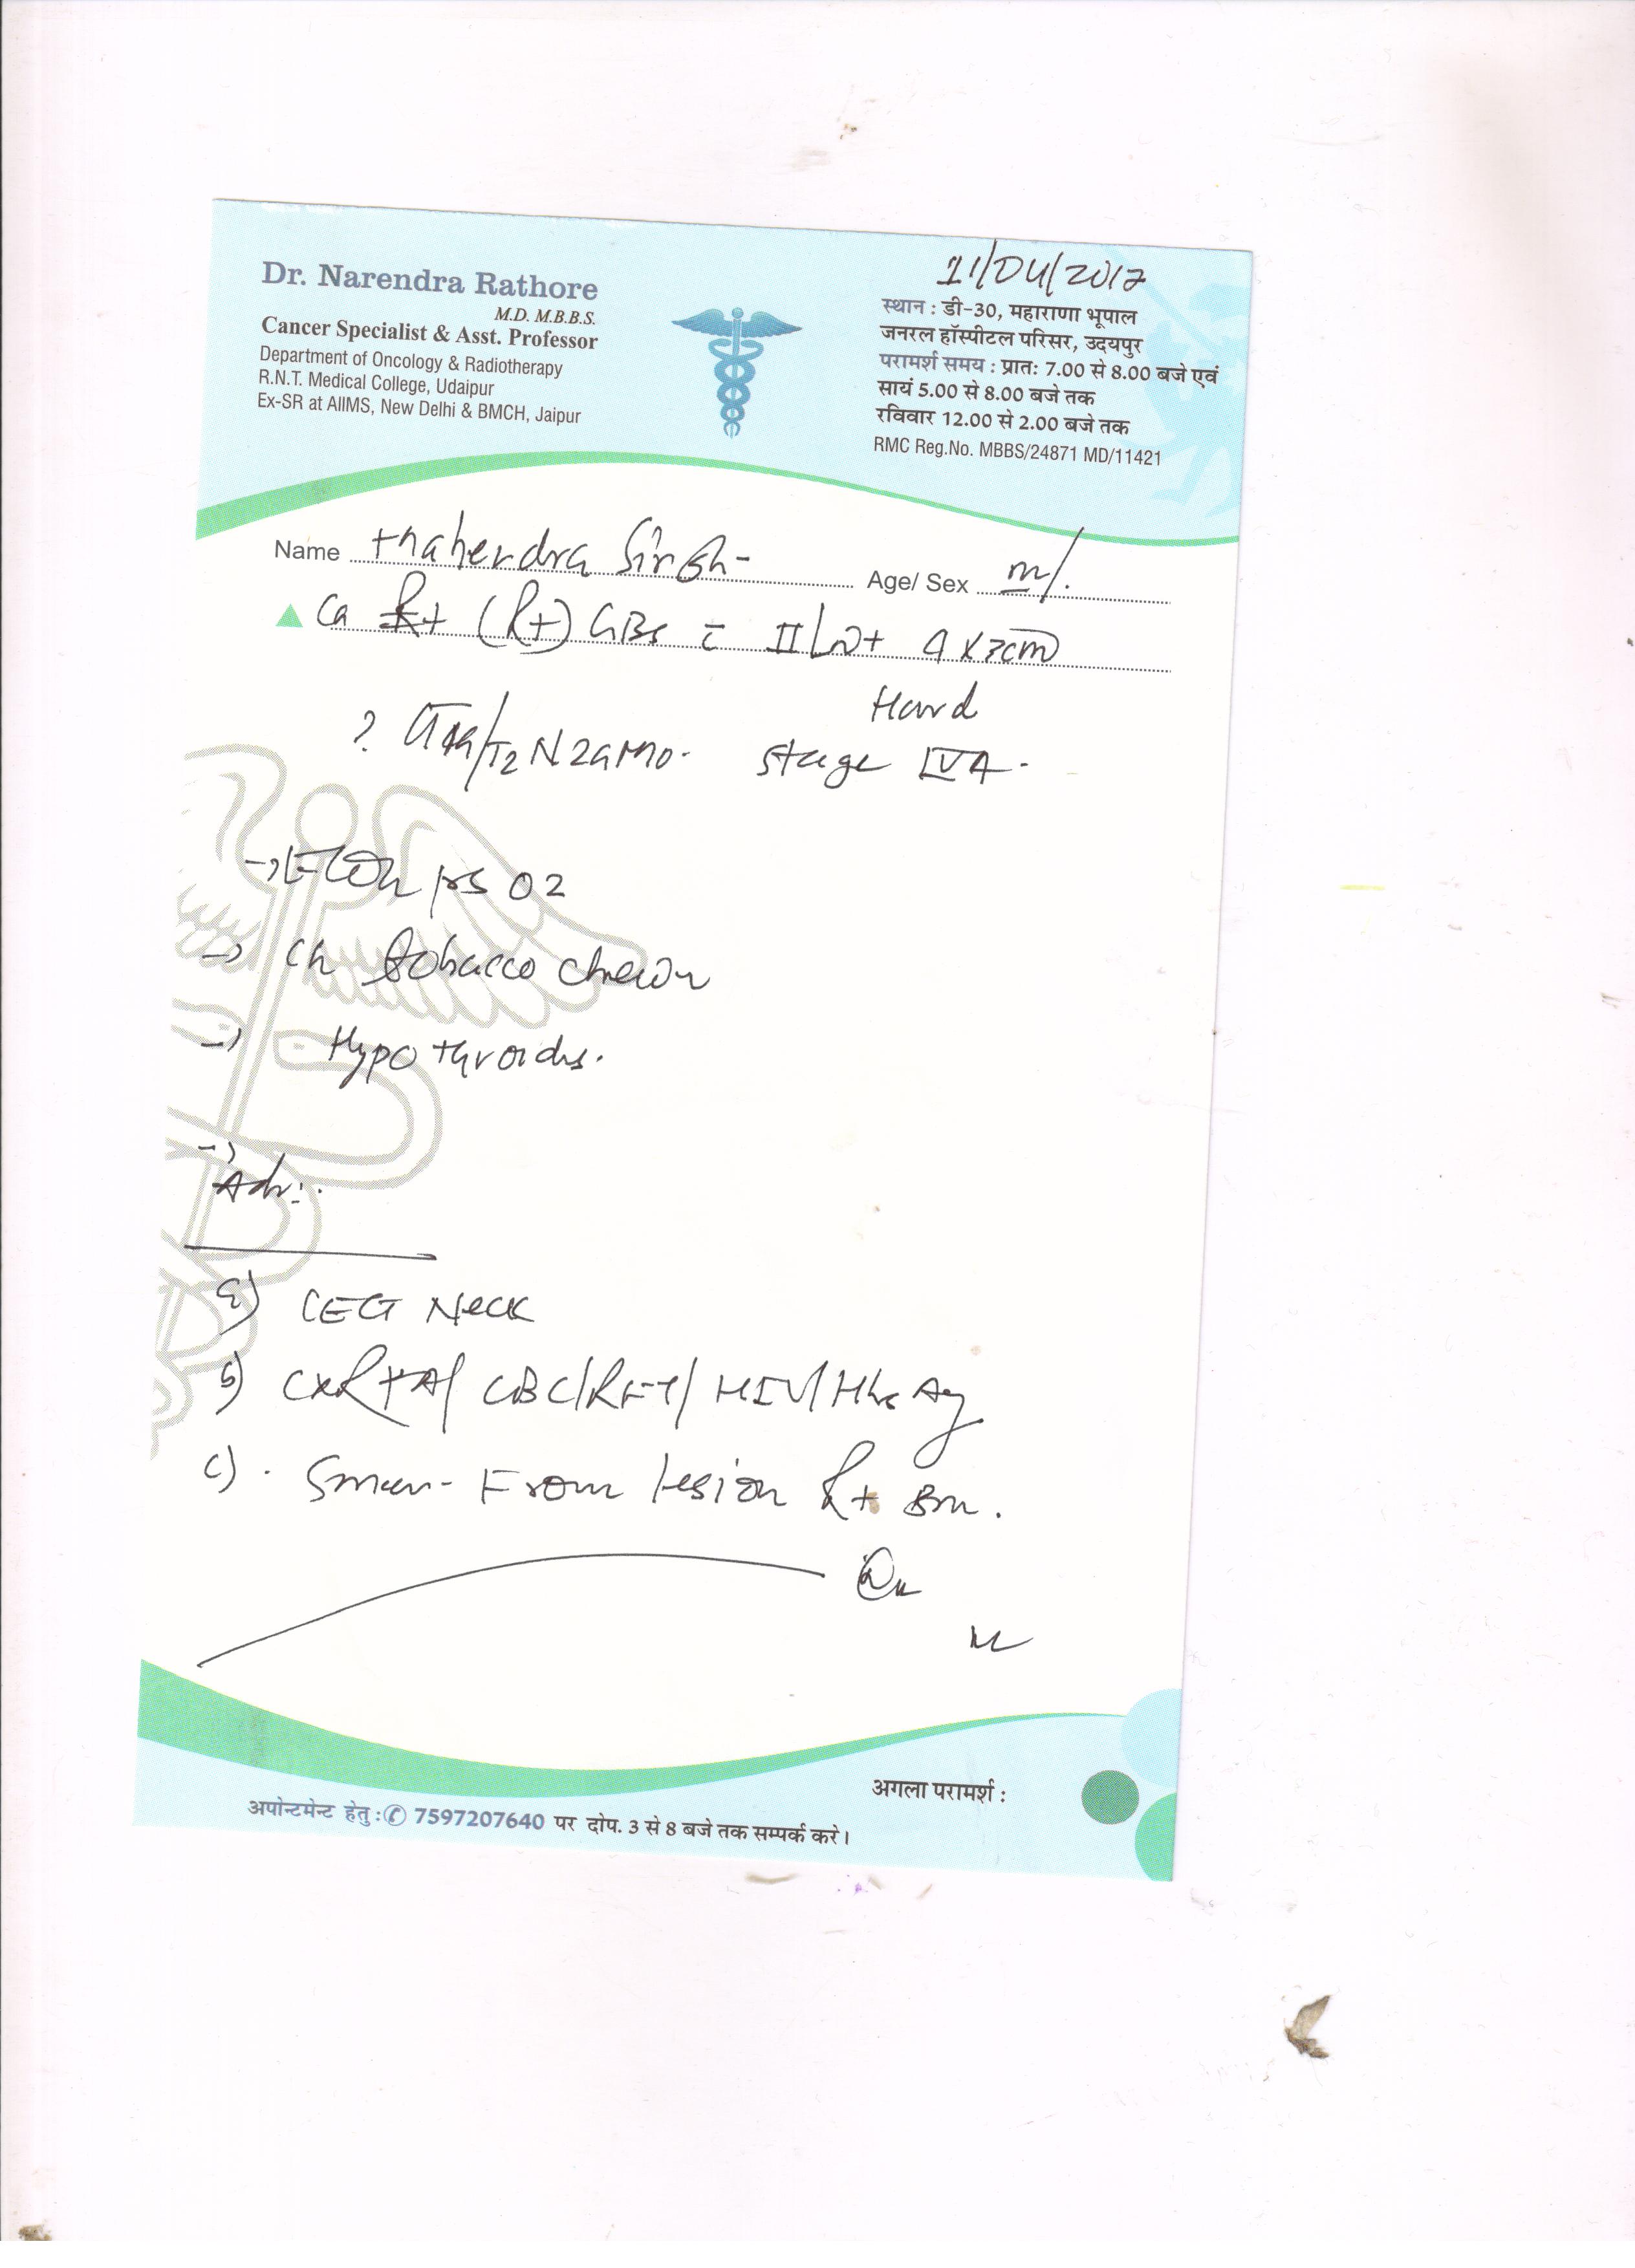 Dr. Narendra Rathore
M.D. M.B.B.S.
Cancer Specialist & Asst. Professor
Department of Oncology & Radiotherapy
R.N.T. Medical College, Udaipur
Ex-SR at AIIMS, New Delhi & BMCH, Jaipur
11/04/2017
स्थान : डी-30, महाराणा भूपाल
जनरल हॉस्पीटल परिसर, उदयपुर
परामर्श समय : प्रातः 7.00 से 8.00 बजे एवं
सायं 5.00 से 8.00 बजे तक
रविवार 12.00 से 2.00 बजे तक
RMC Reg.No. MBBS/24871 MD/11421
Name Mahendra Singh Age/ Sex m/.
Ca (Rt) GBS c II LN+ cm
Hard
? T2 N2a M0. Stage IVA.
→ PS 02
→ Ch tobacco chewer
→ Hypothyroidis.
→ Adv:
a) Neck
b) CXR PA/ CBC/RFT/ HIV/HbsAg
c). Smear From lesion Rt Bm.
अगला परामर्श :
अपोन्टमेन्ट हेतु : 7597207640 पर दोप. 3 से 8 बजे तक सम्पर्क करे।